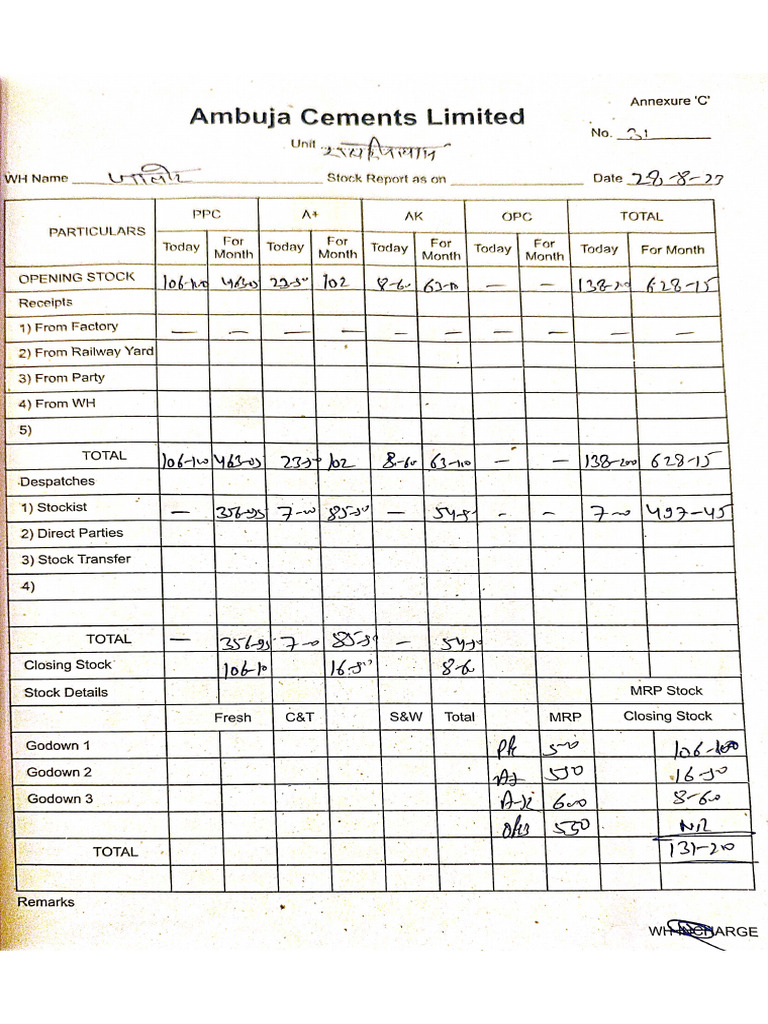 Annexure 'C'
Ambuja Cements Limited
No. 31
Unit
WH Name जालोर Stock Report as on Date 28-8-23
PARTICULARS PPC A+ AK OPC TOTAL
Today For Month Today For Month Today For Month Today For Month Today For Month
OPENING STOCK 106-100 463-05 23-50 102 8-60 63-10 — — 138-200 628-15
Receipts
1) From Factory — — — — — — — — — —
2) From Railway Yard
3) From Party
4) From WH
5)
TOTAL 106-100 463-05 23-50 102 8-60 63-10 — — 138-200 628-15
Despatches
1) Stockist — 356-95 7-00 85-50 — 54-50 - - 7-00 497-45
2) Direct Parties
3) Stock Transfer
4)
TOTAL — 356-95 7-00 85-50 — 54-50
Closing Stock 106-10 16-50 8-60
Stock Details MRP Stock
Fresh C&T S&W Total MRP Closing Stock
Godown 1 500 106-100
Godown 2 550 16-50
Godown 3 600 8-60
550 Nil
TOTAL 131-20
Remarks
WH INCHARGE